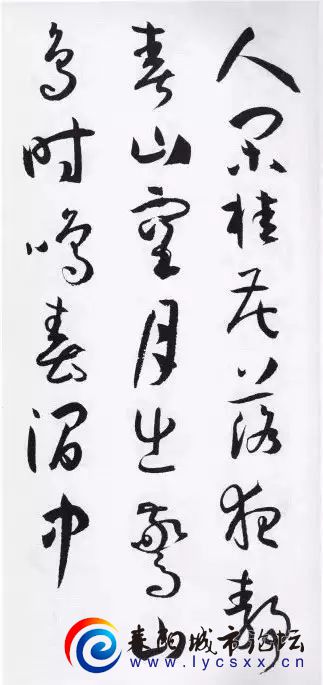 人閑桂花落夜靜
春山空月出驚山
鳥时鳴春澗中
耒阳城市论坛
www.lycsxx.cn